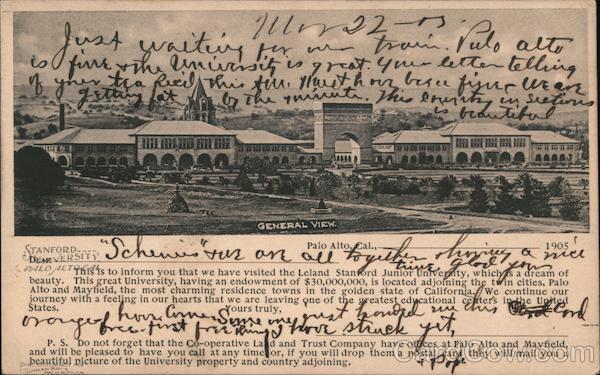 Mar 22 - 05.
Just waiting for our train. Palo alto
is fine & the University is great. Your letter telling
of your tea rec'd this A.M. Must have been fine. We are
getting fat by the minute. This country in sections
is beautiful
GENERAL VIEW.
Palo Alto, Cal., 1905
STANFORD
UNIVERSITY
PALO ALTO CAL
"Schemes" & we are all together having a nice
time. Good news
Dear
This is to inform you that we have visited the Leland Stanford Junior University, which is a dream of
beauty. This great University, having an endowment of $30,000,000, is located adjoining the twin cities, Palo
Alto and Mayfield, the most charming residence towns in the golden state of California. We continue our
journey with a feeling in our hearts that we are leaving one of the greatest educational centers in the United
States. Yours truly,
have Some one just handed me this card
free. First free thing I have struck yet,
P. S. Do not forget that the Co-operative Land and Trust Company have offices at Palo Alto and Mayfield,
and will be pleased to have you call at any time, or, if you will drop them a postal card they will mail you a
beautiful picture of the University property and country adjoining.
Pop.
CardCow.com